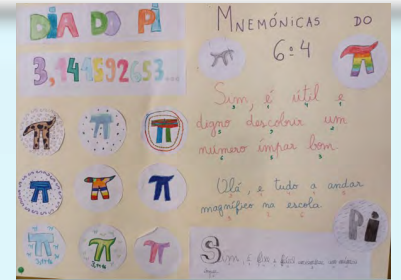 DIA DO PI
3,141592653...
MNEMÓNICAS DO
6º 4
Sim, é útil e
digno descobrir um
número ímpar bom.
Olá, e tudo a andar
magnífico na escola
PI
Sim, é